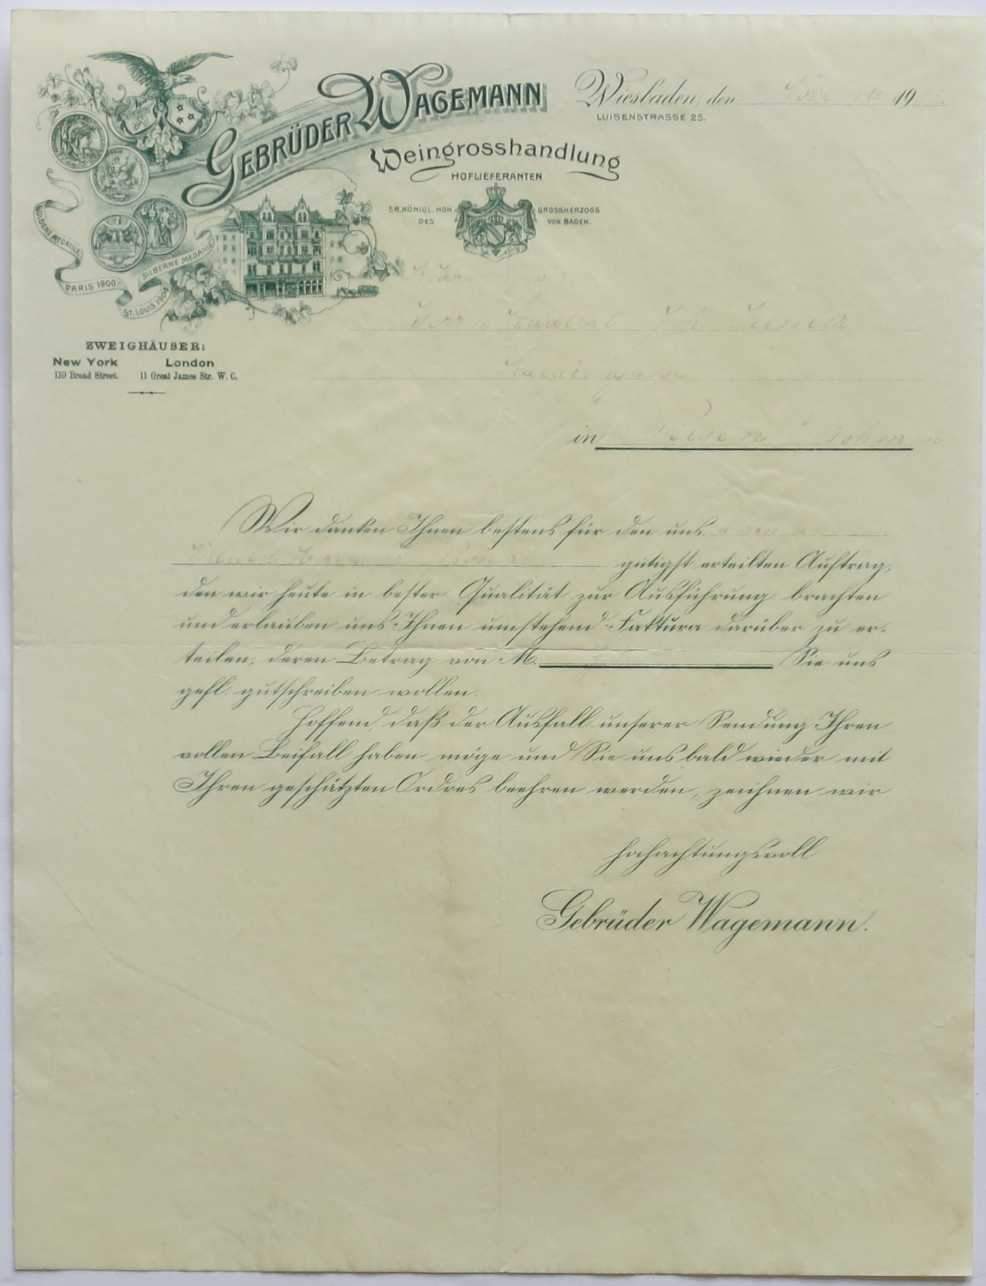 GEBRÜDER WAGEMANN
Weingrosshandlung
HOFLIEFERANTEN
SR. KÖNIGL. HOH. GROSSHERZOGS
DES VON BADEN.
Wiesbaden den 19
LUISENSTRASSE 25.
GOLDENE MEDAILLE
PARIS 1900
SILBERNE MEDAILLE
ST. LOUIS 1904
ZWEIGHÄUSER:
New York London
139 Broad Street. 11 Great James Str. W. C.
in
Wir danken Ihnen bestens für den uns
gütigst erteilten Auftrag,
den wir heute in bester Qualität zur Ausführung brachten
und erlauben uns Ihnen umstehend Faktura darüber zu er-
teilen, deren Betrag von M. Sie uns
gefl. gutschreiben wollen.
Hoffend, daß der Ausfall unserer Sendung Ihren
vollen Beifall haben möge und Sie uns bald wieder mit
Ihren geschätzten Ordres beehren werden, zeichnen wir
hochachtungsvoll
Gebrüder Wagemann.